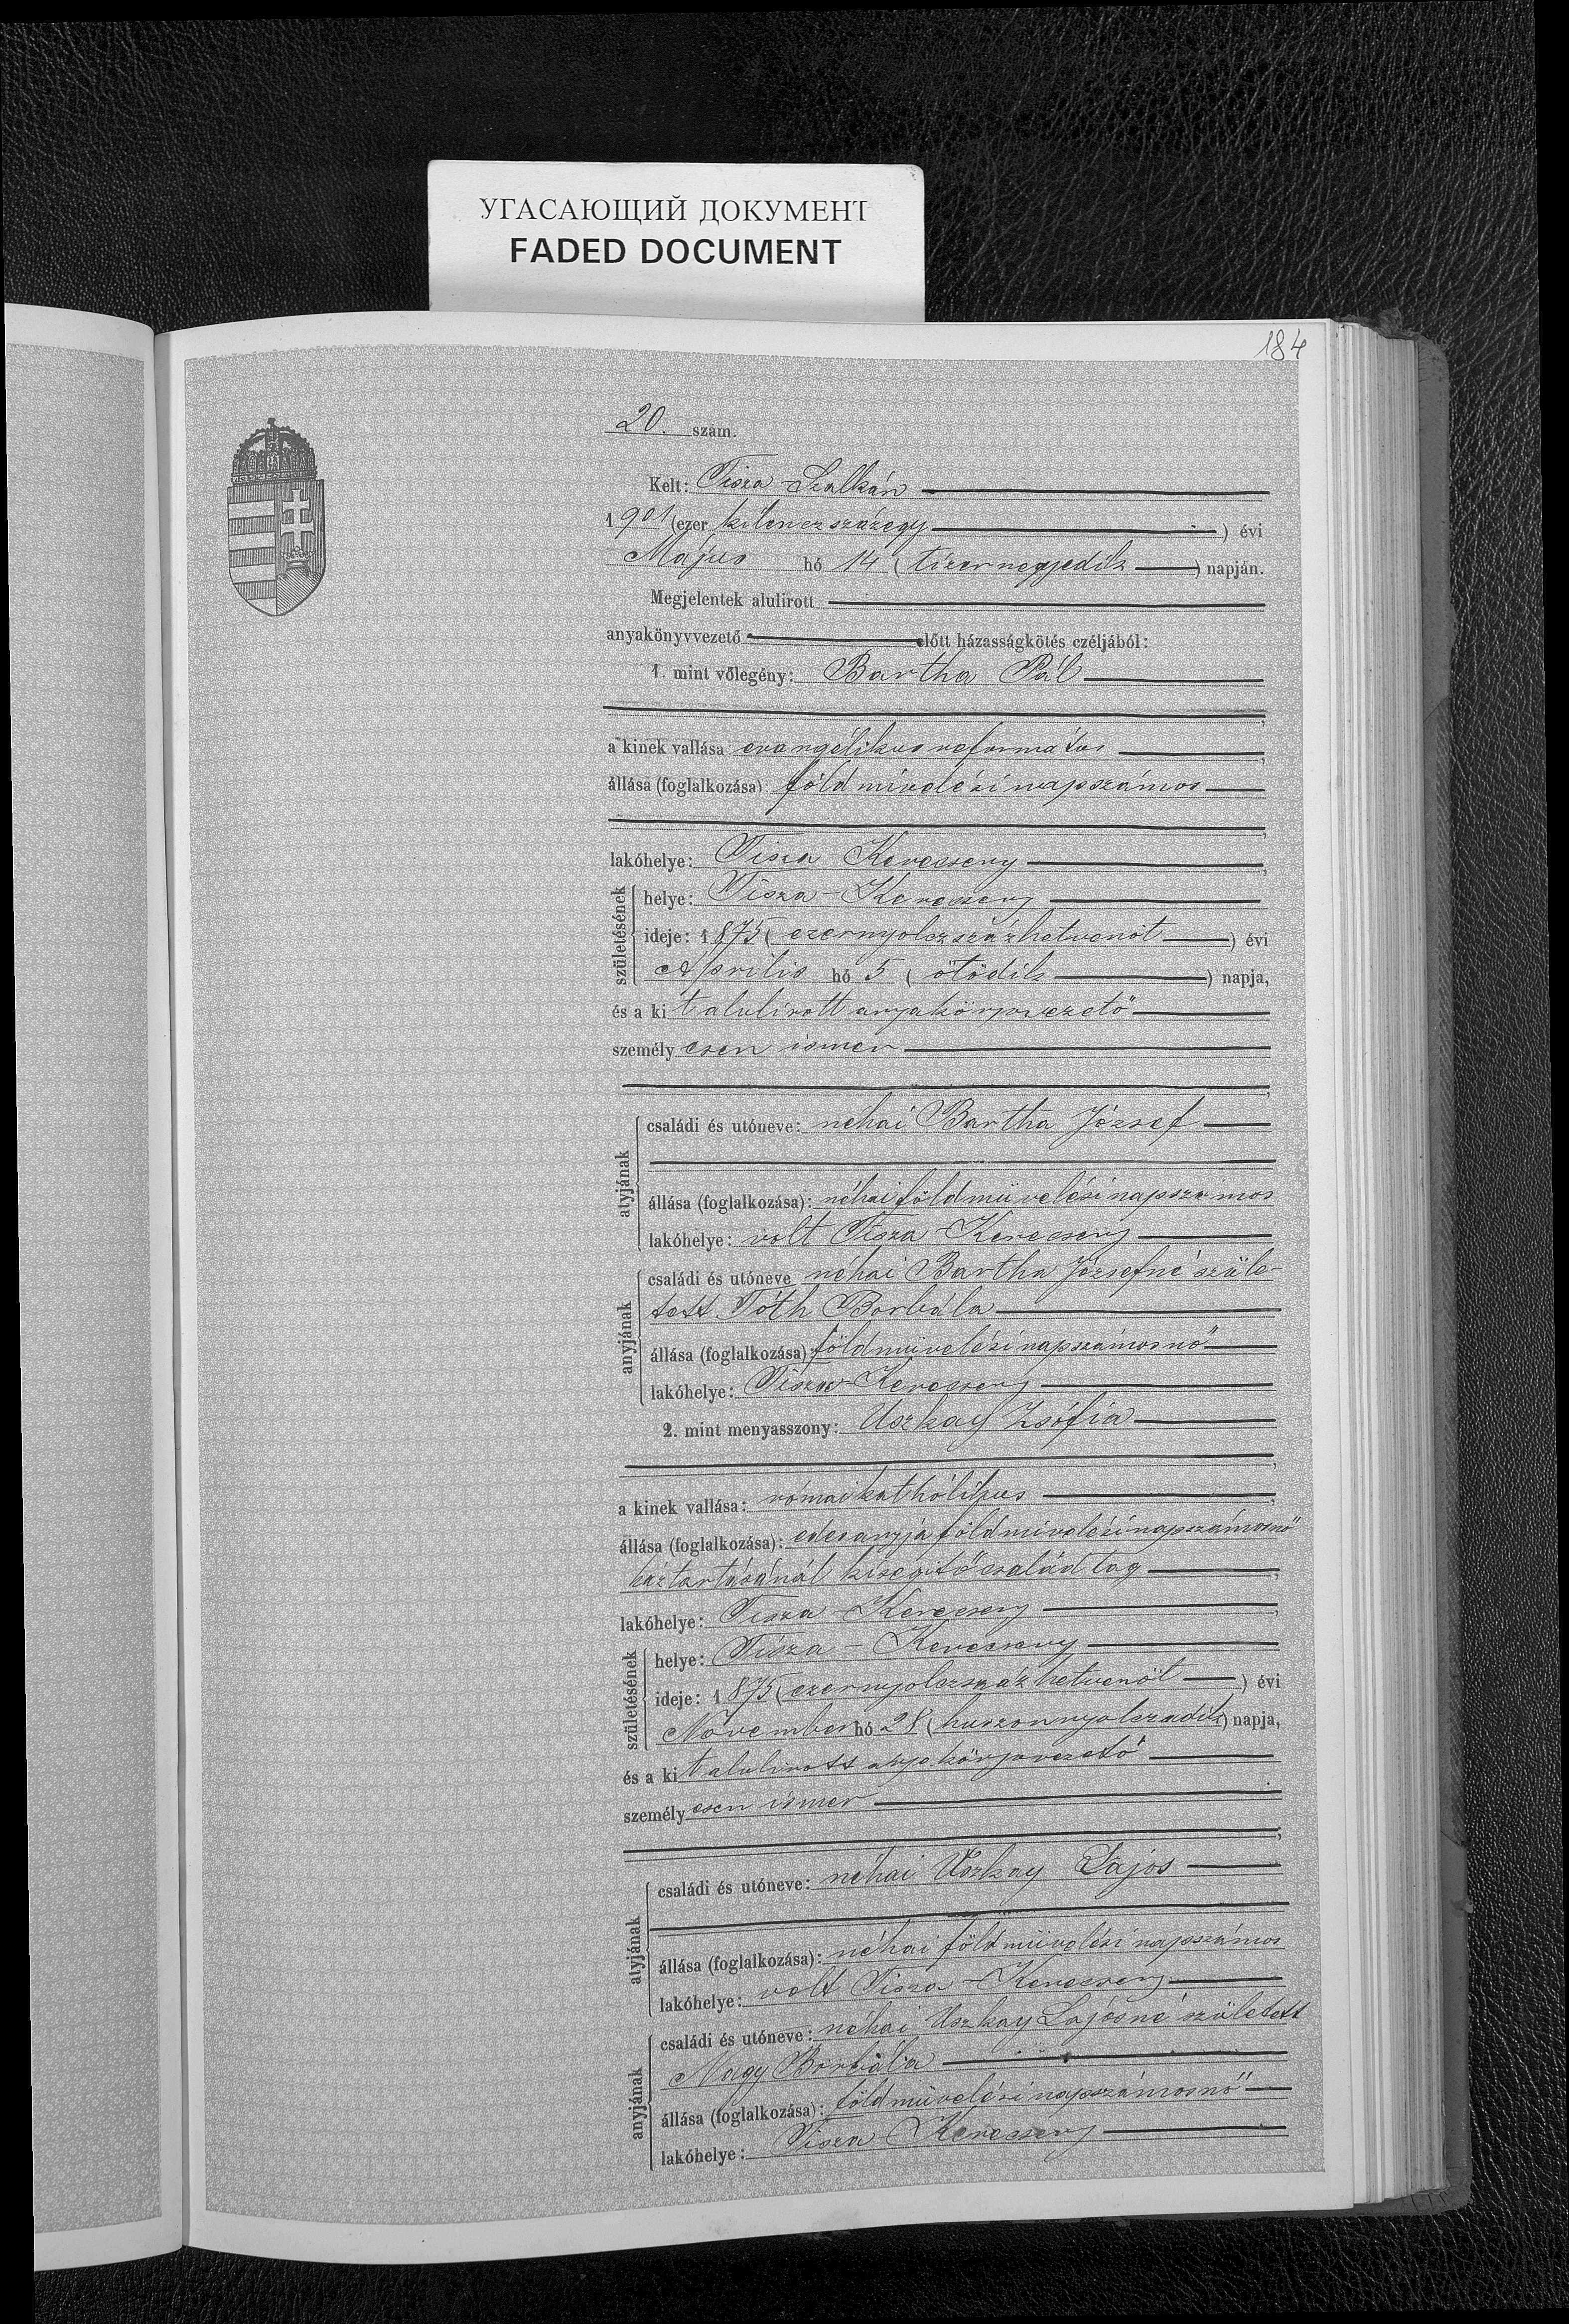 УГАСАЮЩИЙ ДОКУМЕНТ
FADED DOCUMENT
184
20. szám.
Kelt: Tisza-Szalkán
1901 (ezer kilenczszázegy) évi
Május hó 14 (tizennegyedik) napján.
Megjelentek alulirott
anyakönyvvezető előtt házasságkötés czéljából:
1. mint vőlegény: Bartha Pál
a kinek vallása evangélikus református
állása (foglalkozása) földmivelési napszámos
lakóhelye: Tisza Kerecseny
születésének
helye: Tisza-Kerecseny
ideje: 1875 (ezernyolczszázhetvenöt) évi
Április hó 5 (ötödik) napja,
és a kit alulirott anyakönyvvezető
személyesen ismer
atyjának
családi és utóneve: nehai Bartha József
állása (foglalkozása): néhai földmüvelési napszamos
lakóhelye: volt Tisza-Kerecseny
anyjának
családi és utóneve néhai Bartha Józsefné szüle-
tett Tóth Borbála
állása (foglalkozása) földmüvelési napszámosnő
lakóhelye: Tisza-Kerecseny
2. mint menyasszony: Uszkay Zsófia
a kinek vallása: római kathólikus
állása (foglalkozása): edesanyja földmivelési napszámosnő
háztartásánál kisegitő családtag
lakóhelye: Tisza-Kerecseny
születésének
helye: Tisza-Kerecseny
ideje: 1875 (ezernyolczszázhetvenöt) évi
November hó 28 (huszonnyolczadik) napja,
és a kit alulirott anyakönyvvezető
személyesen ismer
atyjának
családi és utóneve: néhai Uszkay Lajos
állása (foglalkozása): néhai földmüvelési napszámos
lakóhelye: volt Tisza-Kerecseny
anyjának
családi és utóneve: néhai Uszkay Lajosné született
Nagy Borbála
állása (foglalkozása): földmüvelési napszámosnő
lakóhelye: Tisza Kerecseny